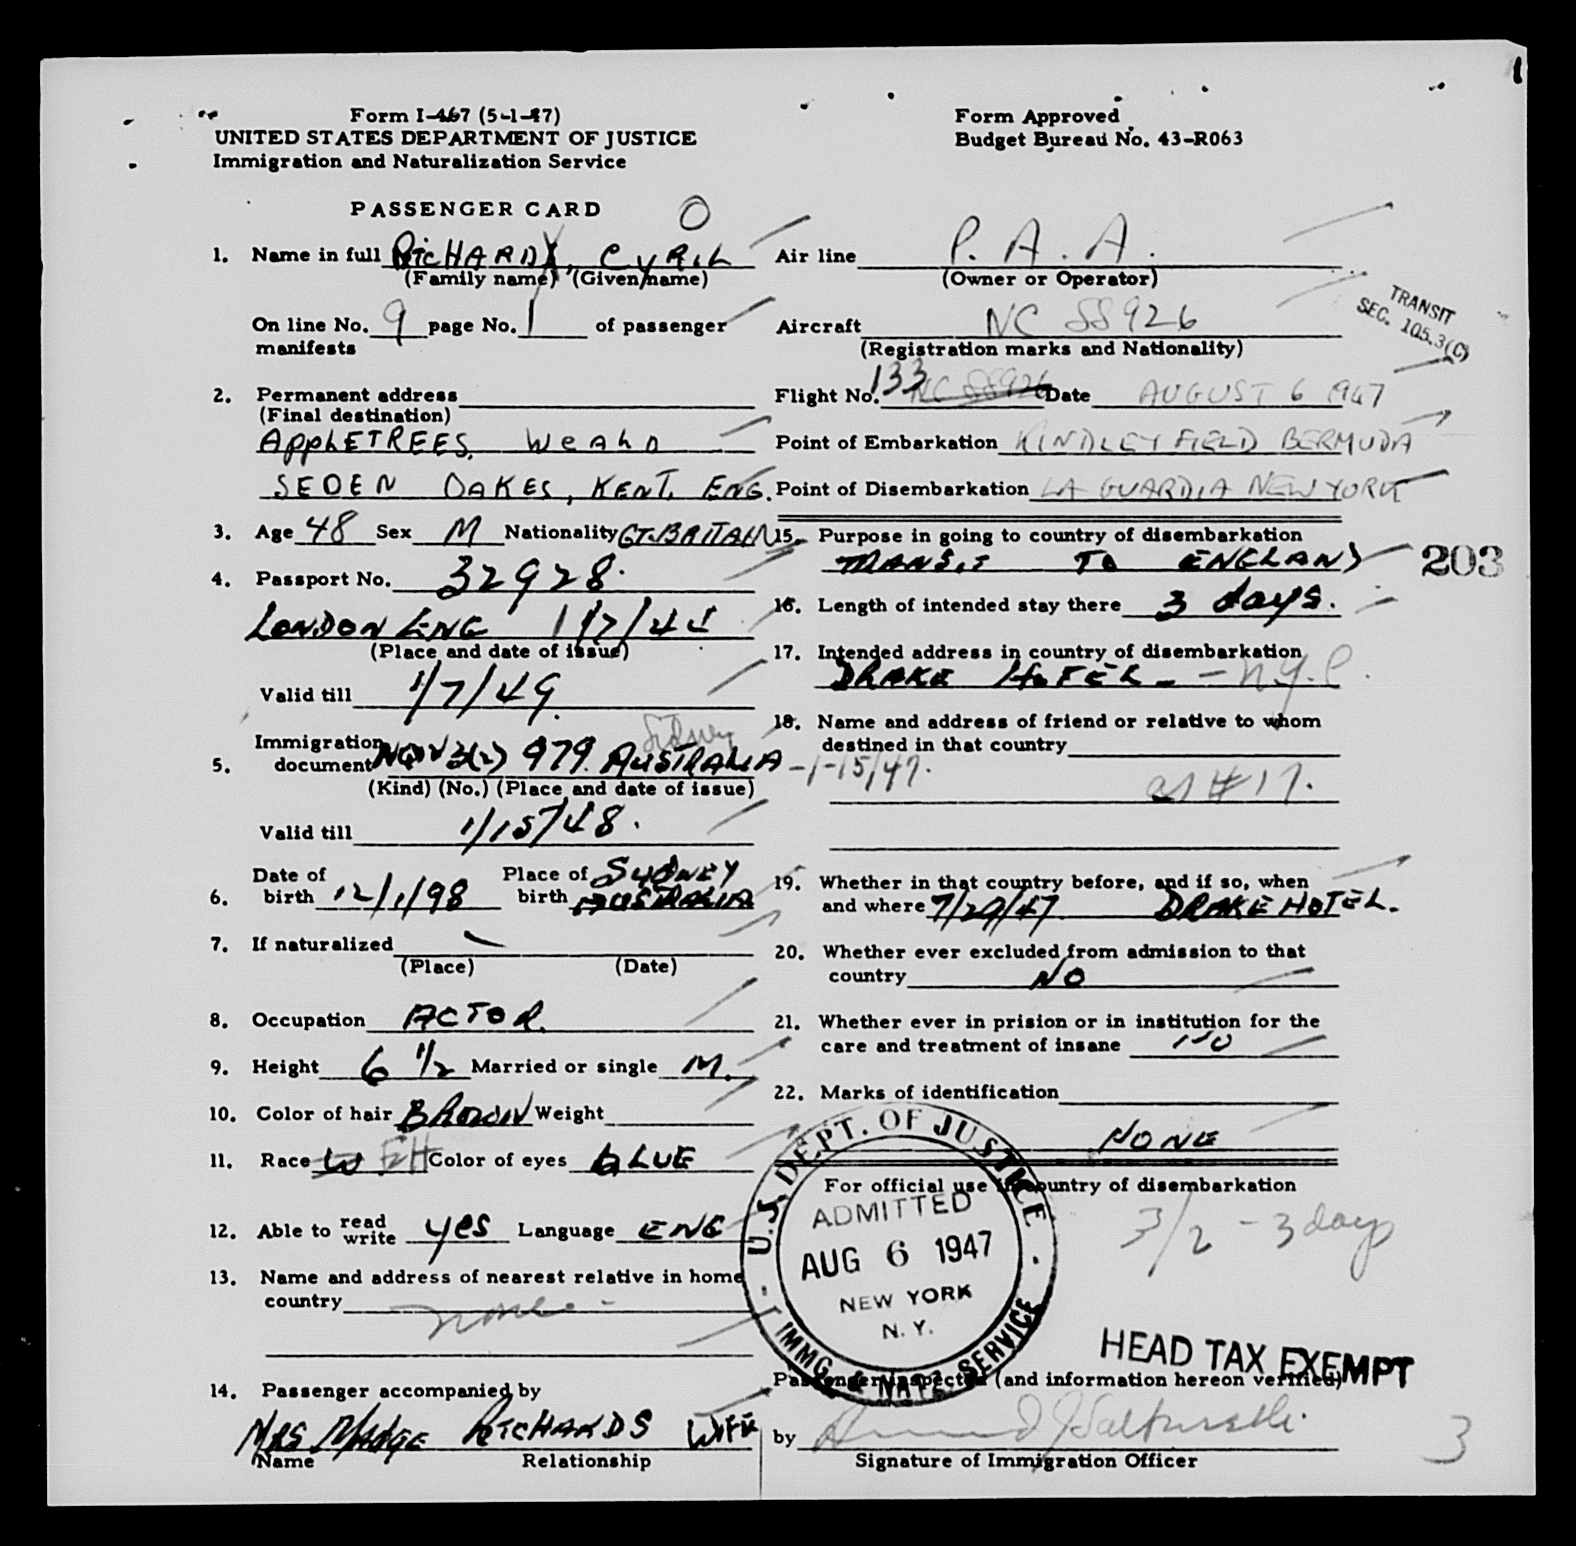 Form I-467 (5-1-47)
UNITED STATES DEPARTMENT OF JUSTICE
Immigration and Naturalization Service
Form Approved
Budget Bureau No. 43-R063
PASSENGER CARD O
1. Name in full RICHARDS, CYRIL
(Family name) (Given name)
On line No. 9 page No. 1 of passenger
manifests
2. Permanent address
(Final destination)
APPLETREES, WEALD
SEDEN OAKES, KENT. ENG.
3. Age 48 Sex M Nationality GT. BRITAIN
4. Passport No. 32928.
LONDON ENG 1/7/44
(Place and date of issue)
Valid till 1/7/49.
Sidney
5. Immigration
document 3(2) 979. AUSTRALIA -1-15/47.
(Kind) (No.) (Place and date of issue)
Valid till 1/15/48.
6. Date of
birth 12/1/98 Place of
birth SYDNEY
AUSTRALIA
7. If naturalized
(Place) (Date)
8. Occupation ACTOR.
9. Height 6 1/2 Married or single M.
10. Color of hair BROWN Weight
11. Race W EH Color of eyes BLUE
12. Able to read
write yes Language ENG
13. Name and address of nearest relative in home
country none -
14. Passenger accompanied by
MRS MADGE RICHARDS WIFE
Name Relationship
Air line P. A. A.
(Owner or Operator)
Aircraft NC 88926
(Registration marks and Nationality)
TRANSIT
SEC. 105.3(C)
Flight No. 133 NC 88926 Date AUGUST 6 1947
Point of Embarkation KINDLEY FIELD BERMUDA
Point of Disembarkation LA GUARDIA NEW YORK
15. Purpose in going to country of disembarkation
TRANSIT TO ENGLAND
203
16. Length of intended stay there 3 days.
17. Intended address in country of disembarkation
DRAKE HOTEL. - N.Y.C.
18. Name and address of friend or relative to whom
destined in that country
as #17.
19. Whether in that country before, and if so, when
and where 7/29/47 DRAKE HOTEL.
20. Whether ever excluded from admission to that
country NO
21. Whether ever in prision or in institution for the
care and treatment of insane NO
22. Marks of identification
NONE
For official use in country of disembarkation
3/2 - 3 days
U.S. DEPT. OF JUSTICE
ADMITTED
AUG 6 1947
NEW YORK
N. Y.
IMMG. & NATZ. SERVICE
HEAD TAX EXEMPT
Passenger inspected (and information hereon verified)
by
Signature of Immigration Officer
3